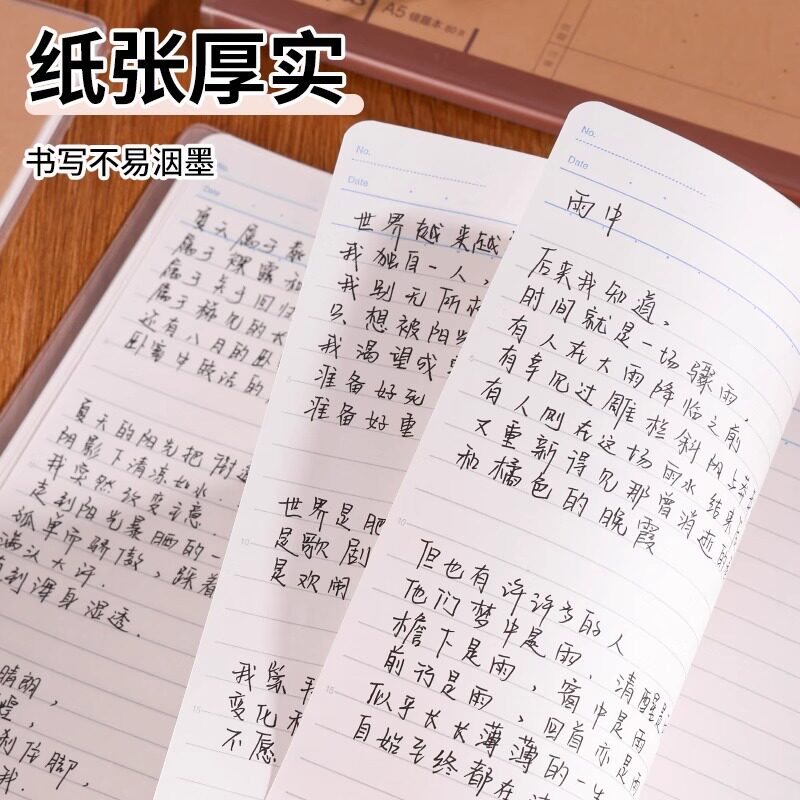 纸张厚实
书写不易洇墨
A5 错题本
No.
Date
夏天属于
属于裸露和
属于关于回归
属于稀见的大
还有八月的卧
夏天的阳光把
阴影下清凉如水.
我突然改变主意.
走到阳光暴晒的一
孤单而骄傲,踩着
满头大汗.
到浑身湿透.
晴朗,
刹住脚,
我.
No.
Date
世界越来越
我独自一人,
我别无所
只想被阳
我渴望成
准备好死
准备好重
世界是肥
是歌剧
是欢闹
我
变化
不愿
No.
Date
雨中
后来我知道,
时间就是一场骤雨,
有人在大雨降临之前
有幸见过雕栏斜阴
有人则在这场雨水结束
又重新得见那曾消逝的
和橘色的晚霞
但也有许许多多的人
他们梦中是雨,清醒是
檐下是雨,窗中是雨
前行是雨,回首亦是雨
似乎长长薄薄的一生
自始至终都在